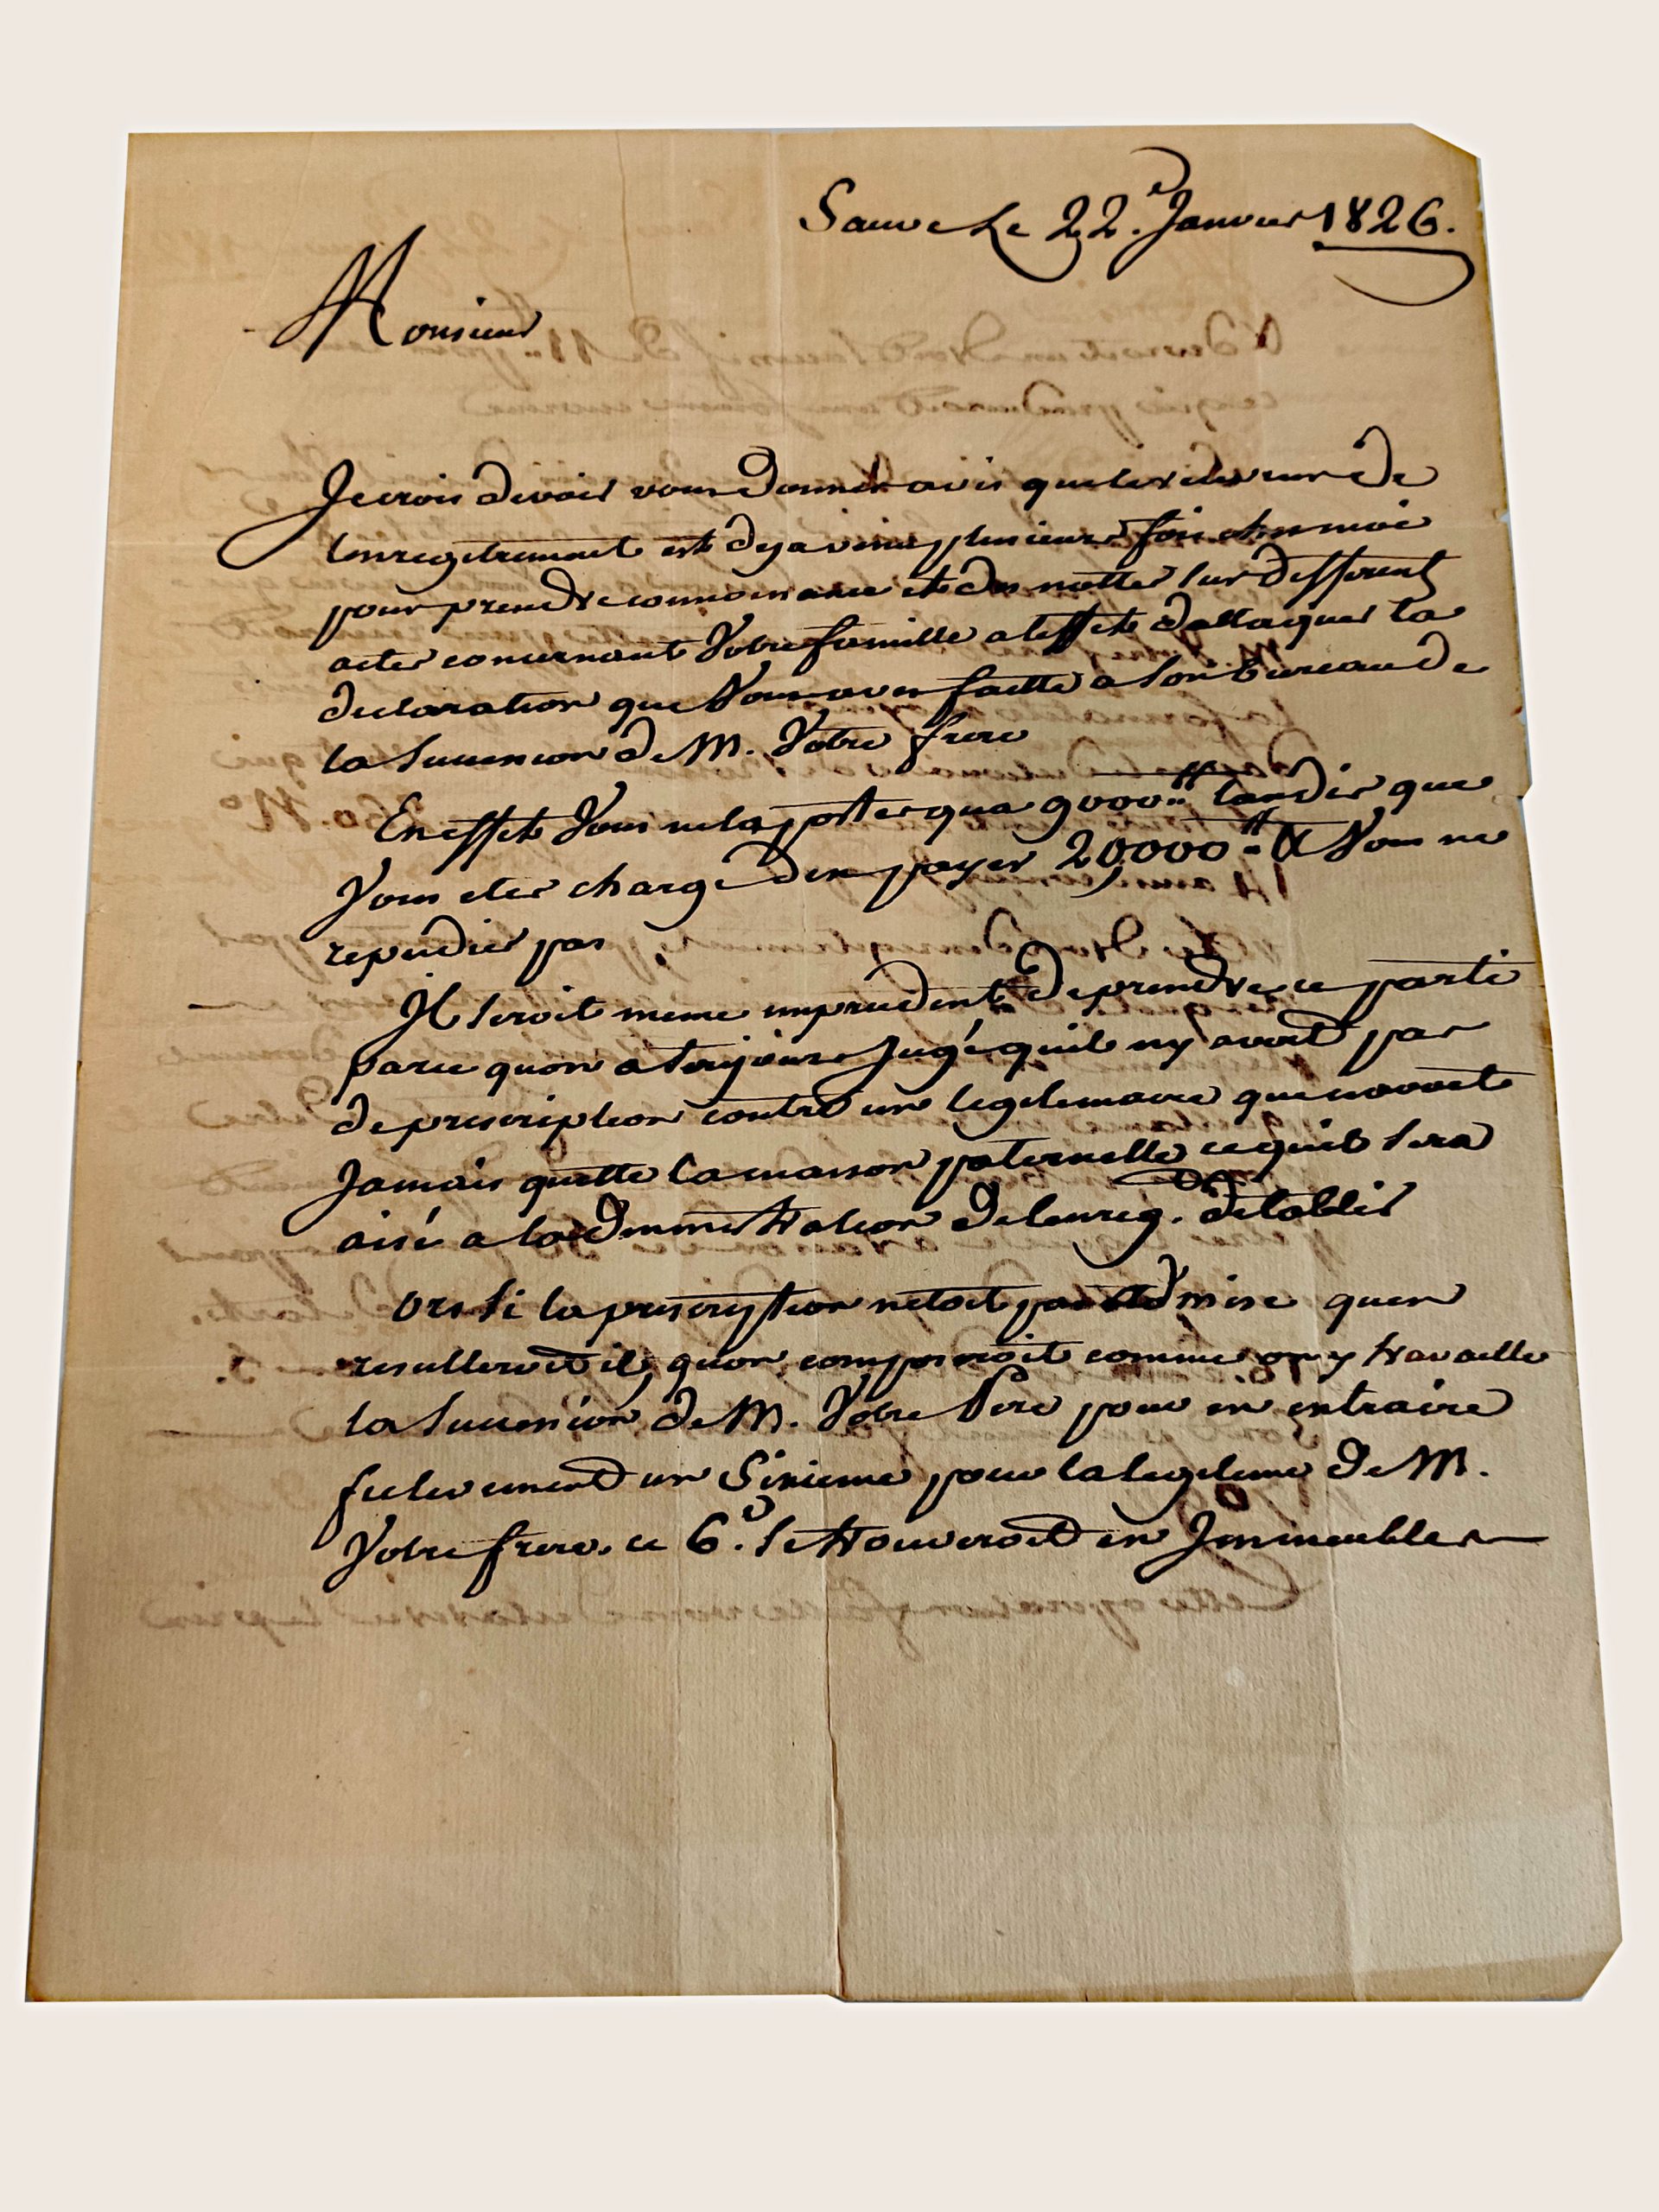 Sauve Le 22.e Janvier 1826.
Monsieur
Je crois devoir vous donner avis que le receveur de
lenregitrement est deja venu plusieurs fois ches moi
pour prendre connoissance et des nottes sur differents
actes concernant Votre famille a leffet dattaquer la
declaration que Vous aves faitte a son bureau de
la Succession de M. Votre frere
En effet Vous ne la portes qua 9000.tt tandis que
Vous etes charge den payer 20000.tt & Vous ne
repudies pas
Il seroit meme imprudent de prendre ce parti
parce quon a toujours Jugé quil ny avoit pas
de prescription contre un legitimaire que navoit
Jamais quitte la maison paternelle ce quil sera
aisé a ladministration de lenreg. detablir
Ors si la prescription netoit pas admise quen
resulteroit il, quon composeroit comme on y travaille
la Succession de M. Votre Pere pour en extraire
fictivement un Sixieme pour la legitime de M.
Votre frere. ce 6.e se trouveroit en Immeubles